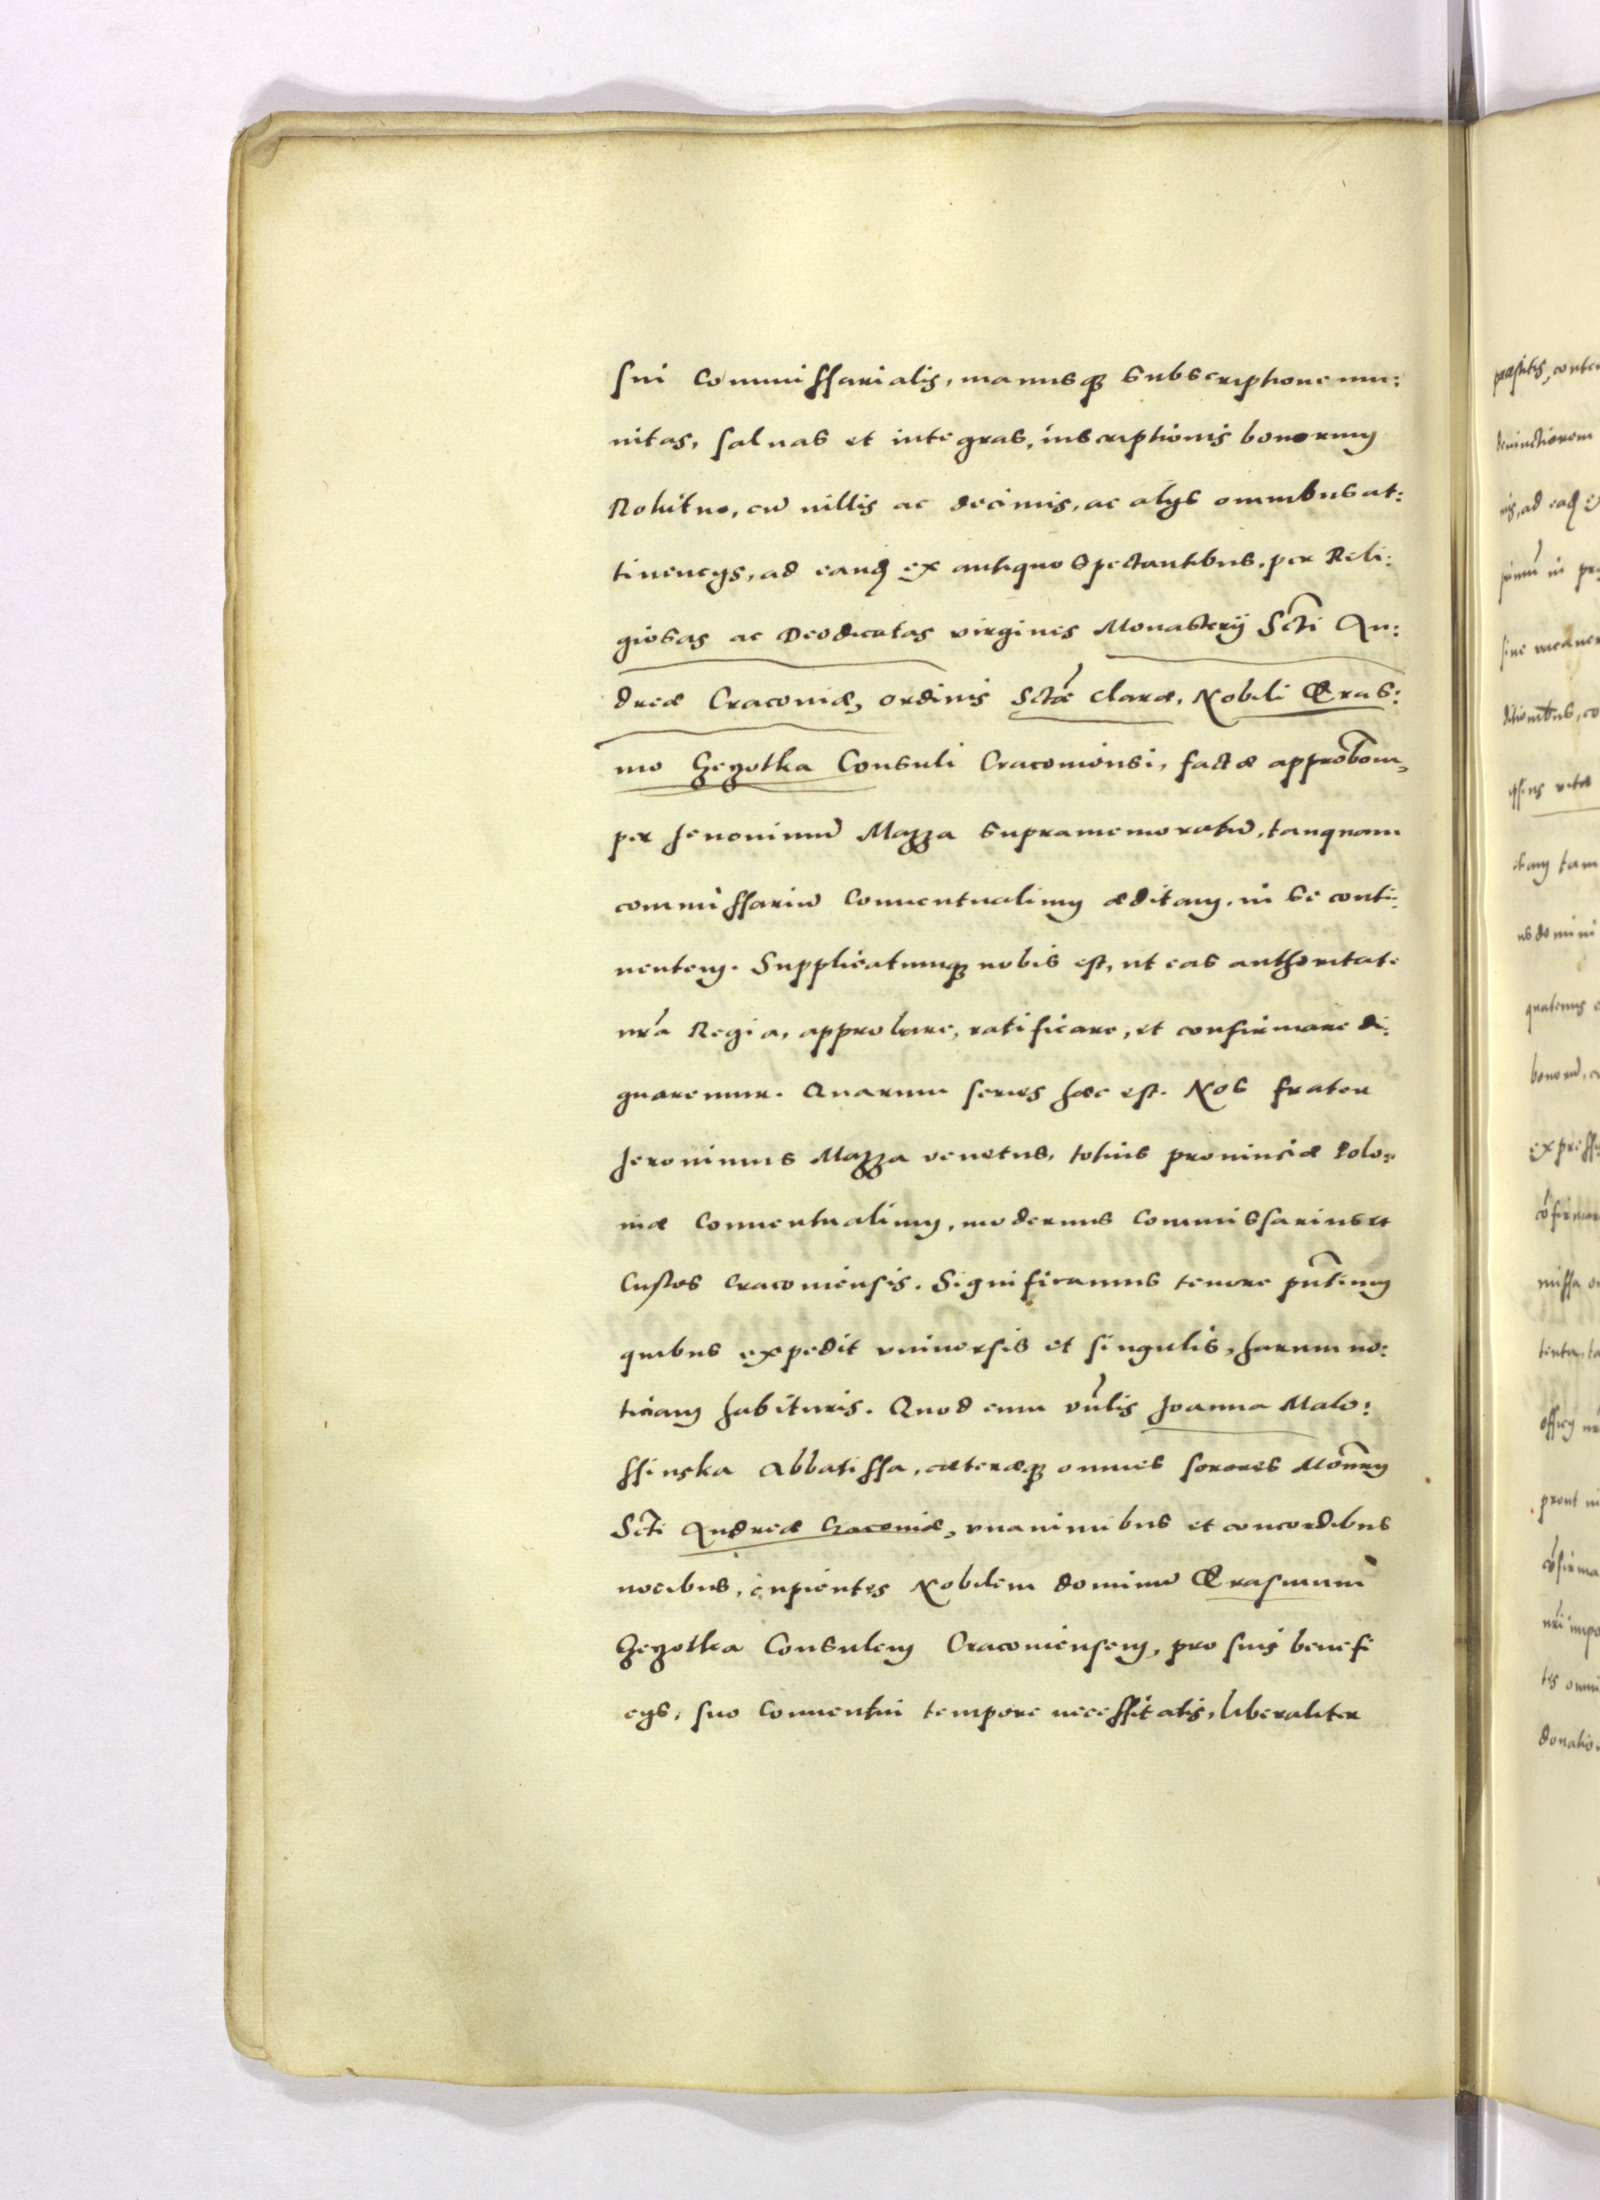 sui Commissarialis, manusq subscriptione mu:
nitas, saluas et integras, inscriptionis bonorum
Rohitno, cũ uillis ac decimis, ac alijs omnibus at:
tinencijs, ad eandẽ ex antiquo spectantibus, per Reli:
giosas ac Deodicatas virgines Monasterij Scti An:
dreæ Cracouiæ, ordinis Sctæ Claræ, Nobili Eras:
mo Czeczotka Consuli Cracouiensi, factæ approbõem,
per Jeronimũ Mazza supramemoratũ, tanquam
commissariũ Conuentualium æditam, in se conti:
nentem. Supplicatumq nobis est, ut eas authoritate
nrã Regia, approbare, ratificare, et confirmare di:
gnaremur. Quarum series hæc est. Nos frater
Jeronimus Mazza venetus, totius prouinciæ Polo:
niæ Conuentualium, modernus Commissarius et
Custos Cracouiensis. Significamus tenore pñtium
quibus expedit vniuersis et singulis, harum no:
ticiam habituris. Quod cum vñlis Joanna Malo:
ssinska Abbatissa, cæteræq omnes sorores Monrÿ
Scti Andreæ Cracouiæ, vnanimibus et concordibus
uocibus, cupientes Nobilem dominũ Erasmum
Czeczotka Consulem Cracouiensem, pro suis benefi
cijs, suo Conuentui tempore necessitatis, liberaliter
præstitis, conten
deuinctiorem
ditionibus, co
ipsius vitæ
etiam tam
us domini
quatenus
bonorũ,
express
cõfirmar
missa
prout in
cõfirma
nri impo
tes omni
donatio